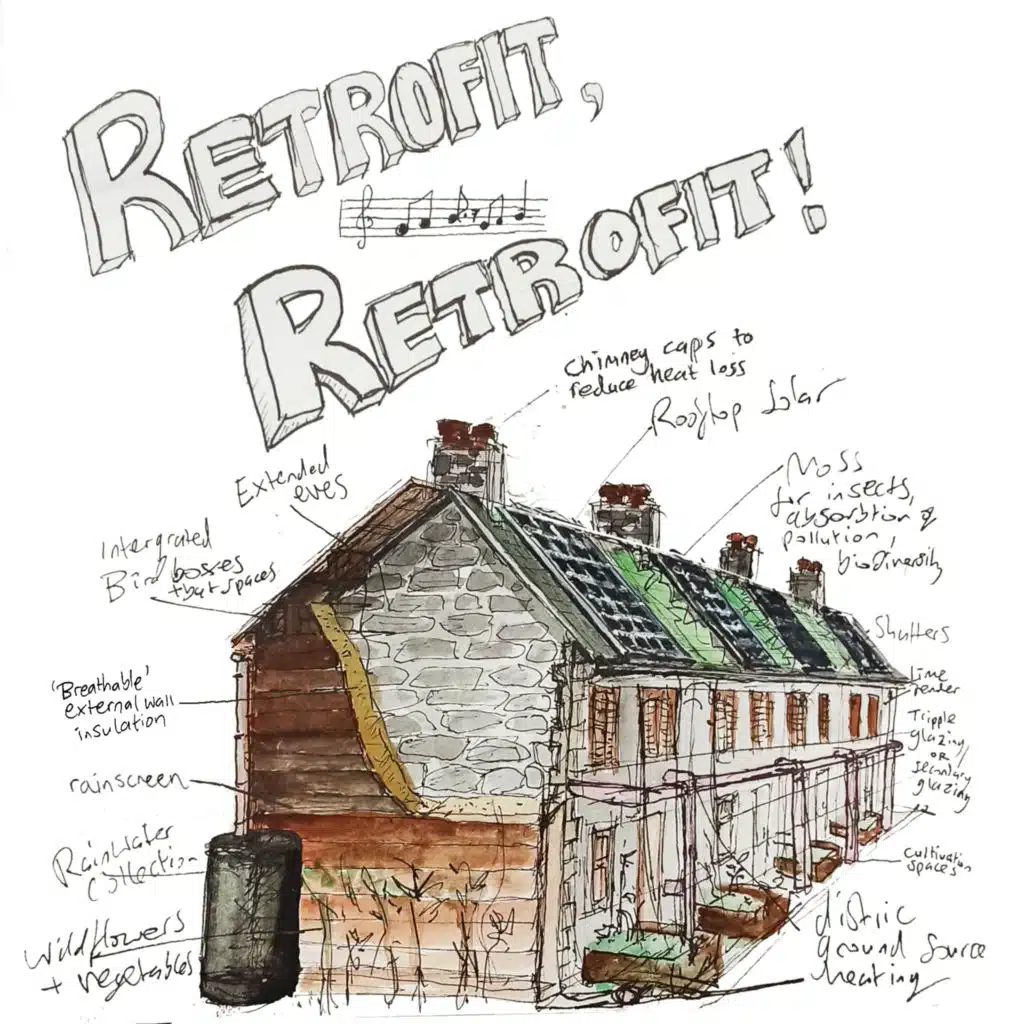 RETROFIT,
RETROFIT!
Chimney caps to
reduce heat loss
Rooftop Solar
Extended
eves
Moss
for insects,
absorbtion of
pollution,
biodiversity
Intergrated
Bird boxes
+ bat spaces
Shutters
'Breathable'
external wall
insulation
Lime
render
Tripple
glazing
OR
secondary
glazing
rainscreen
Rainwater
collection
Cultivation
spaces
Wildflowers
+ vegetables
distric
ground source
heating